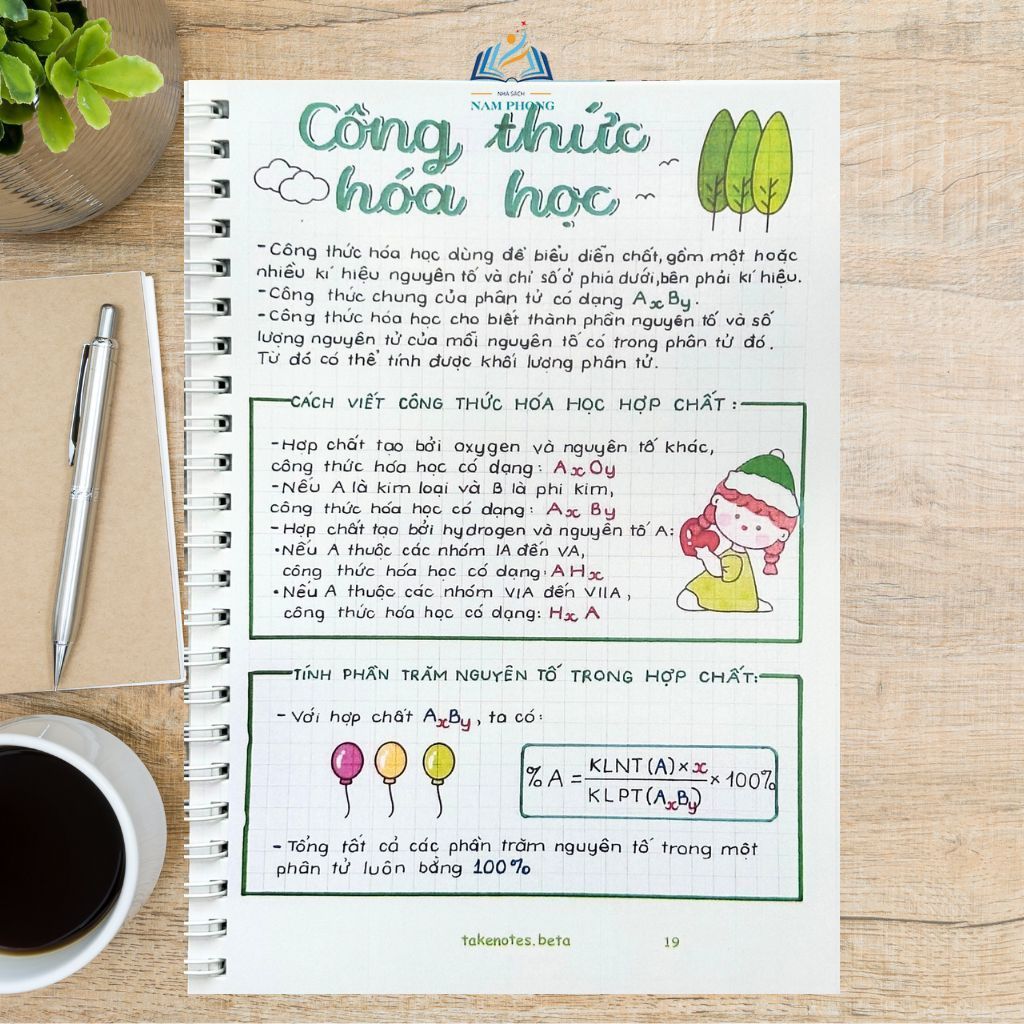 NHÀ SÁCH
NAM PHONG
Công thức
hóa học
- Công thức hóa học dùng để biểu diễn chất, gồm một hoặc
nhiều kí hiệu nguyên tố và chỉ số ở phía dưới, bên phải kí hiệu.
- Công thức chung của phân tử có dạng AxBy.
- Công thức hóa học cho biết thành phần nguyên tố và số
lượng nguyên tử của mỗi nguyên tố có trong phân tử đó.
Từ đó có thể tính được khối lượng phân tử.
CÁCH VIẾT CÔNG THỨC HÓA HỌC HỢP CHẤT:
- Hợp chất tạo bởi oxygen và nguyên tố khác,
công thức hóa học có dạng: AxOy
- Nếu A là kim loại và B là phi kim,
công thức hóa học có dạng: AxBy
- Hợp chất tạo bởi hydrogen và nguyên tố A:
• Nếu A thuộc các nhóm IA đến VA,
công thức hóa học có dạng: AHx
• Nếu A thuộc các nhóm VIA đến VIIA,
công thức hóa học có dạng: HxA
TÍNH PHẦN TRĂM NGUYÊN TỐ TRONG HỢP CHẤT:
- Với hợp chất AxBy, ta có:
% A = KLNT(A) × x / KLPT(AxBy) × 100%
- Tổng tất cả các phần trăm nguyên tố trong một
phân tử luôn bằng 100%
takenotes.beta 19